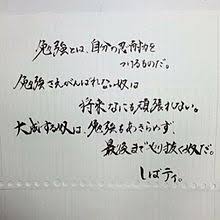 勉強とは、自分の忍耐力を
つけるものだ。
勉強さえがんばれない奴は
将来なにも頑張れない。
大成する奴は、勉強もあきらめず、
最後までやり抜く奴だ
しばティ。